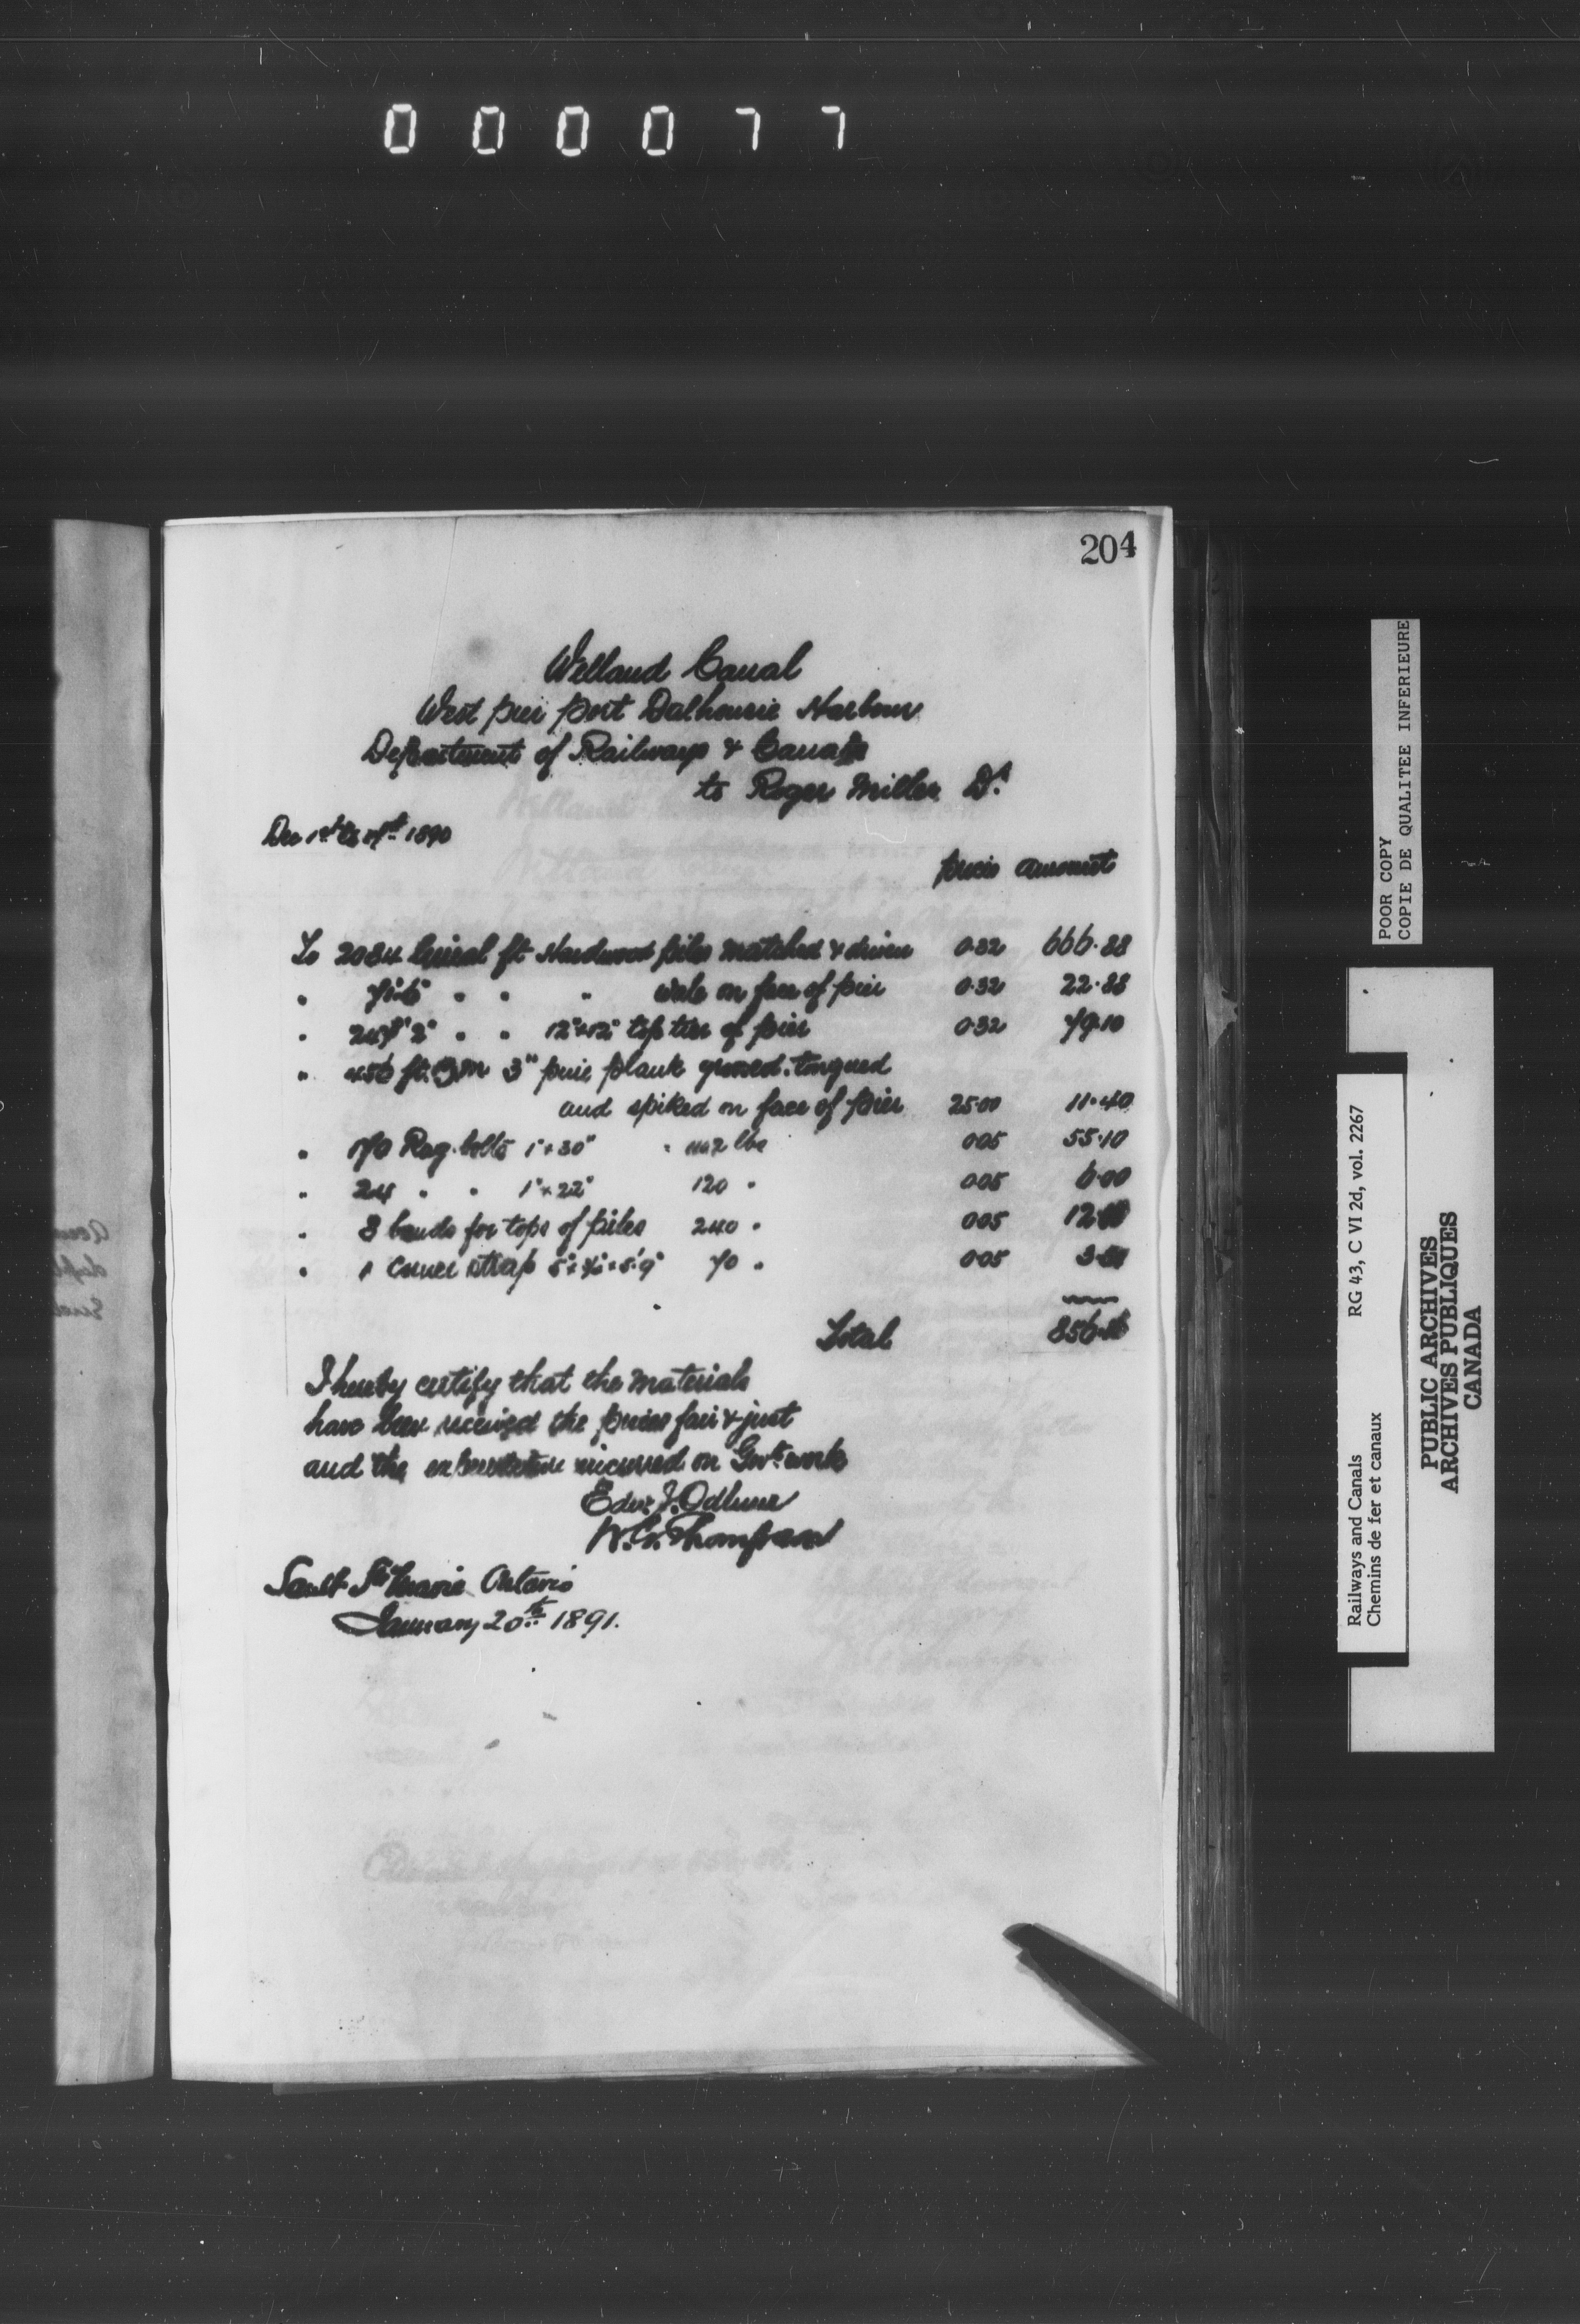 000077
204
Welland Canal
West pier port Dalhousie Harbour
Department of Railways & Canals
to Roger Miller Dr.
Dec 1st to 1890
price amount
To 2084 lineal ft Hardwood piles matched & driven 0.32 666.88
" 71'6" " " " wale on face of pier 0.32 22.88
" 247'2" " " 12"x12" top tier of pier 0.32 79.10
" 456 ft. B.M 3" pine plank grooved. tongued
and spiked on face of pier 25.00 11.40
" 170 Rag bolts 1"x30" " 1102 lbs 005 55.10
" 24 " " 1"x22" 120 " 005 6.00
" 8 bands for tops of piles 240 " 005 12.00
" 1 Corner strap 5"x¾"x5'.9" 70 " 005 3.50
Total 856.86
I hereby certify that the materials
have been received the prices fair & just
and the expenditure incurred on Govt. work
W.G. Thompson
Sault Ste Marie Ontario
January 20th 1891.
POOR COPY
COPIE DE QUALITEE INFERIEURE
Railways and Canals RG 43, C VI 2d, vol. 2267
Chemins de fer et canaux
PUBLIC ARCHIVES
ARCHIVES PUBLIQUES
CANADA